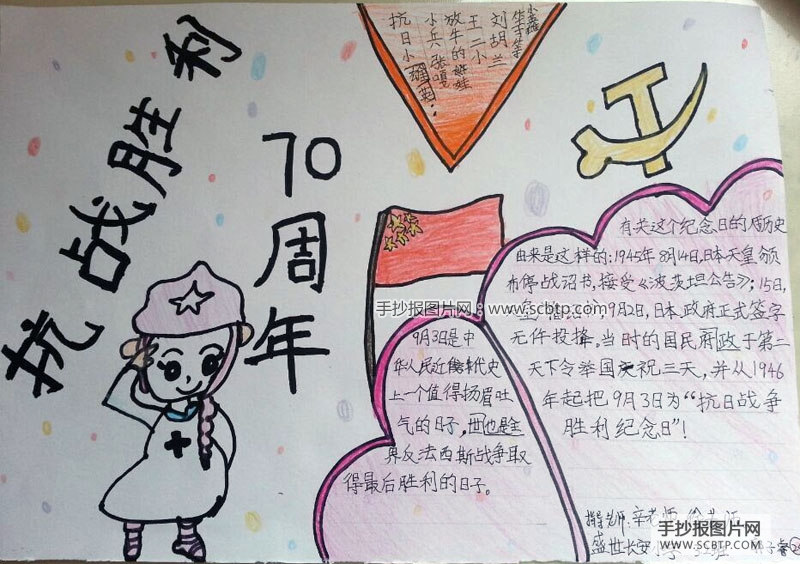 抗战胜利
70周年
小英雄
生于华
刘胡兰
王二小
放牛的娃
小兵张嘎
抗日小英雄:
有关这个纪念日的历史
由来是这样的:1945年8月14日,日本天皇颁
布停战诏书,接受《波茨坦公告》;15日,
9月2日,日本政府正式签字
无件投降,当时的国民府政于第二
天下令举国庆祝三天,并从1946
年起把,9月3日为“抗日战争
胜利纪念日”!
9月3日是中
华人民近代史
上一个值得扬眉吐
气的日子,也是
界反法西斯战争取
得最后胜利的日子。
手抄报图片网:www.scbtp.com
辛老师
盛世长安小学
手抄报图片网
WWW.SCBTP.COM